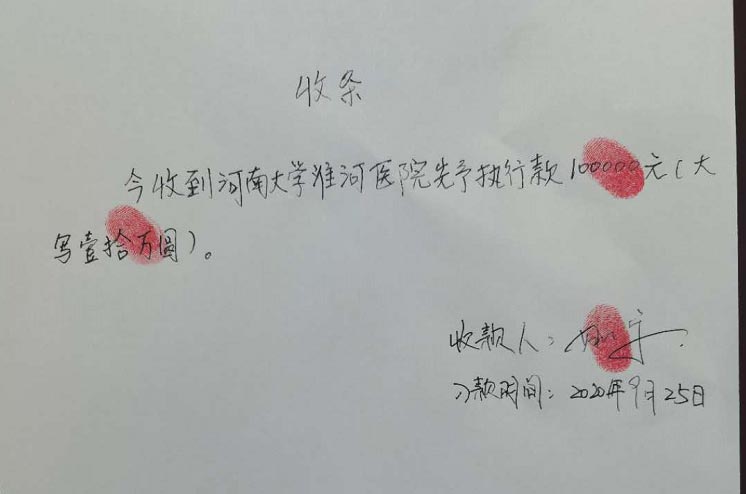 收条
今收到河南大学淮河医院先予执行款100000元(大
写壹拾万圆)。
收款人:
款时间:2020年9月25日